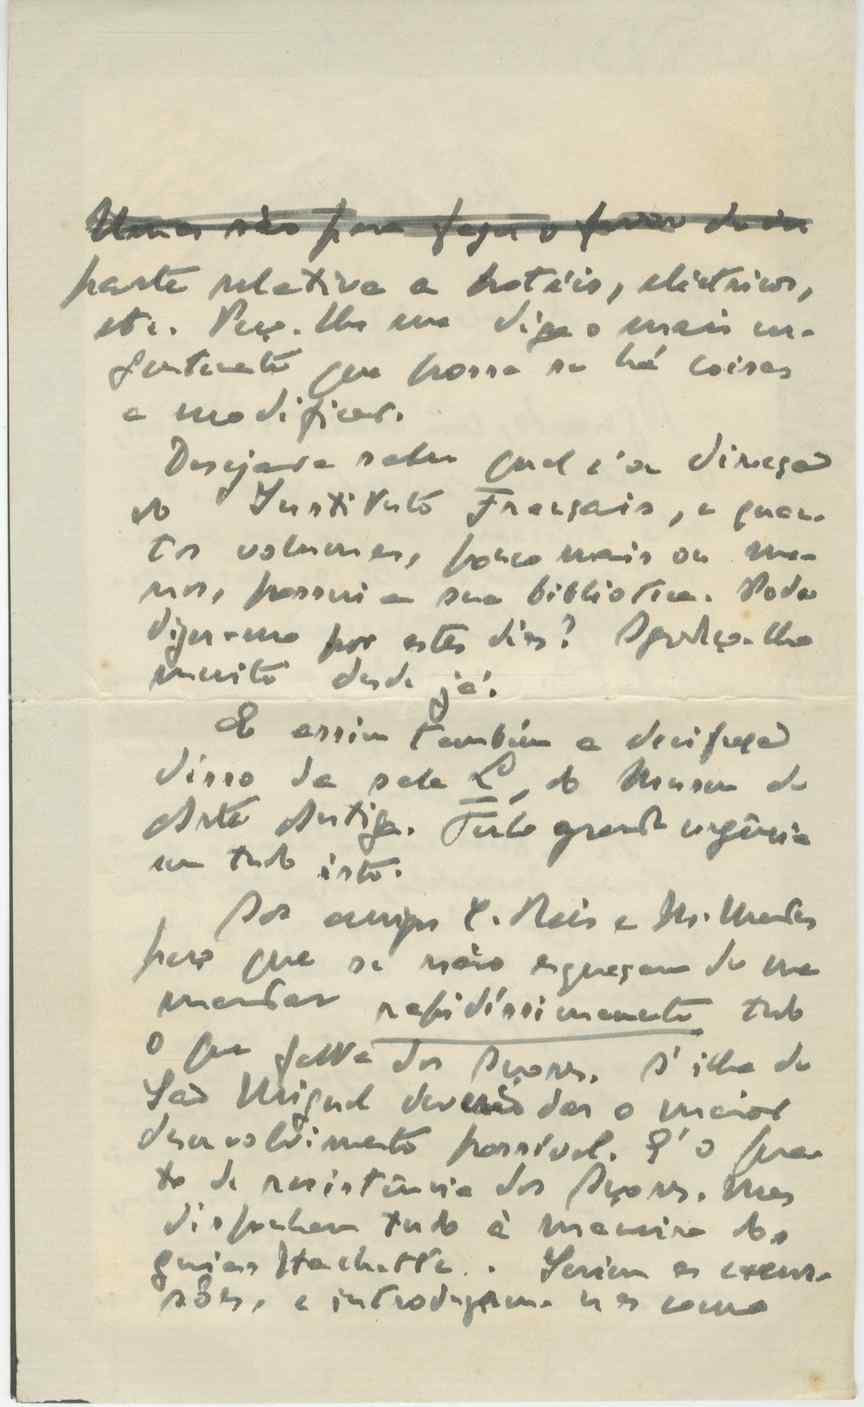 parte relativa a hotéis, eléctricos,
etc. Peço-lhe me diga o mais ur-
gentemente que possa se há coisas
a modificar.
Desejava saber qual é a direcção
do Institut Français, e quan-
tos volumes, pouco mais ou me-
nos, possui a sua biblioteca. Pode
dizer-mo por estes dias? Agradeço-lho
muito desde já.
E assim também a decifração
disso da sala L, do Museu de
Arte Antiga. Tenho grande urgência
em tudo isto.
Aos amigos C. Reis e M. Mendes
peço que se não esqueçam de me
mandar rapidíssimamente tudo
o que falta dos Açores. A ilha de
São Miguel deverão dar o maior
desenvolvimento possível. É o pra-
to de resistência dos Açores. Mas
disponham tudo à maneira dos
guias Hachette. Seriem as excur-
sões, e introduzam nas como